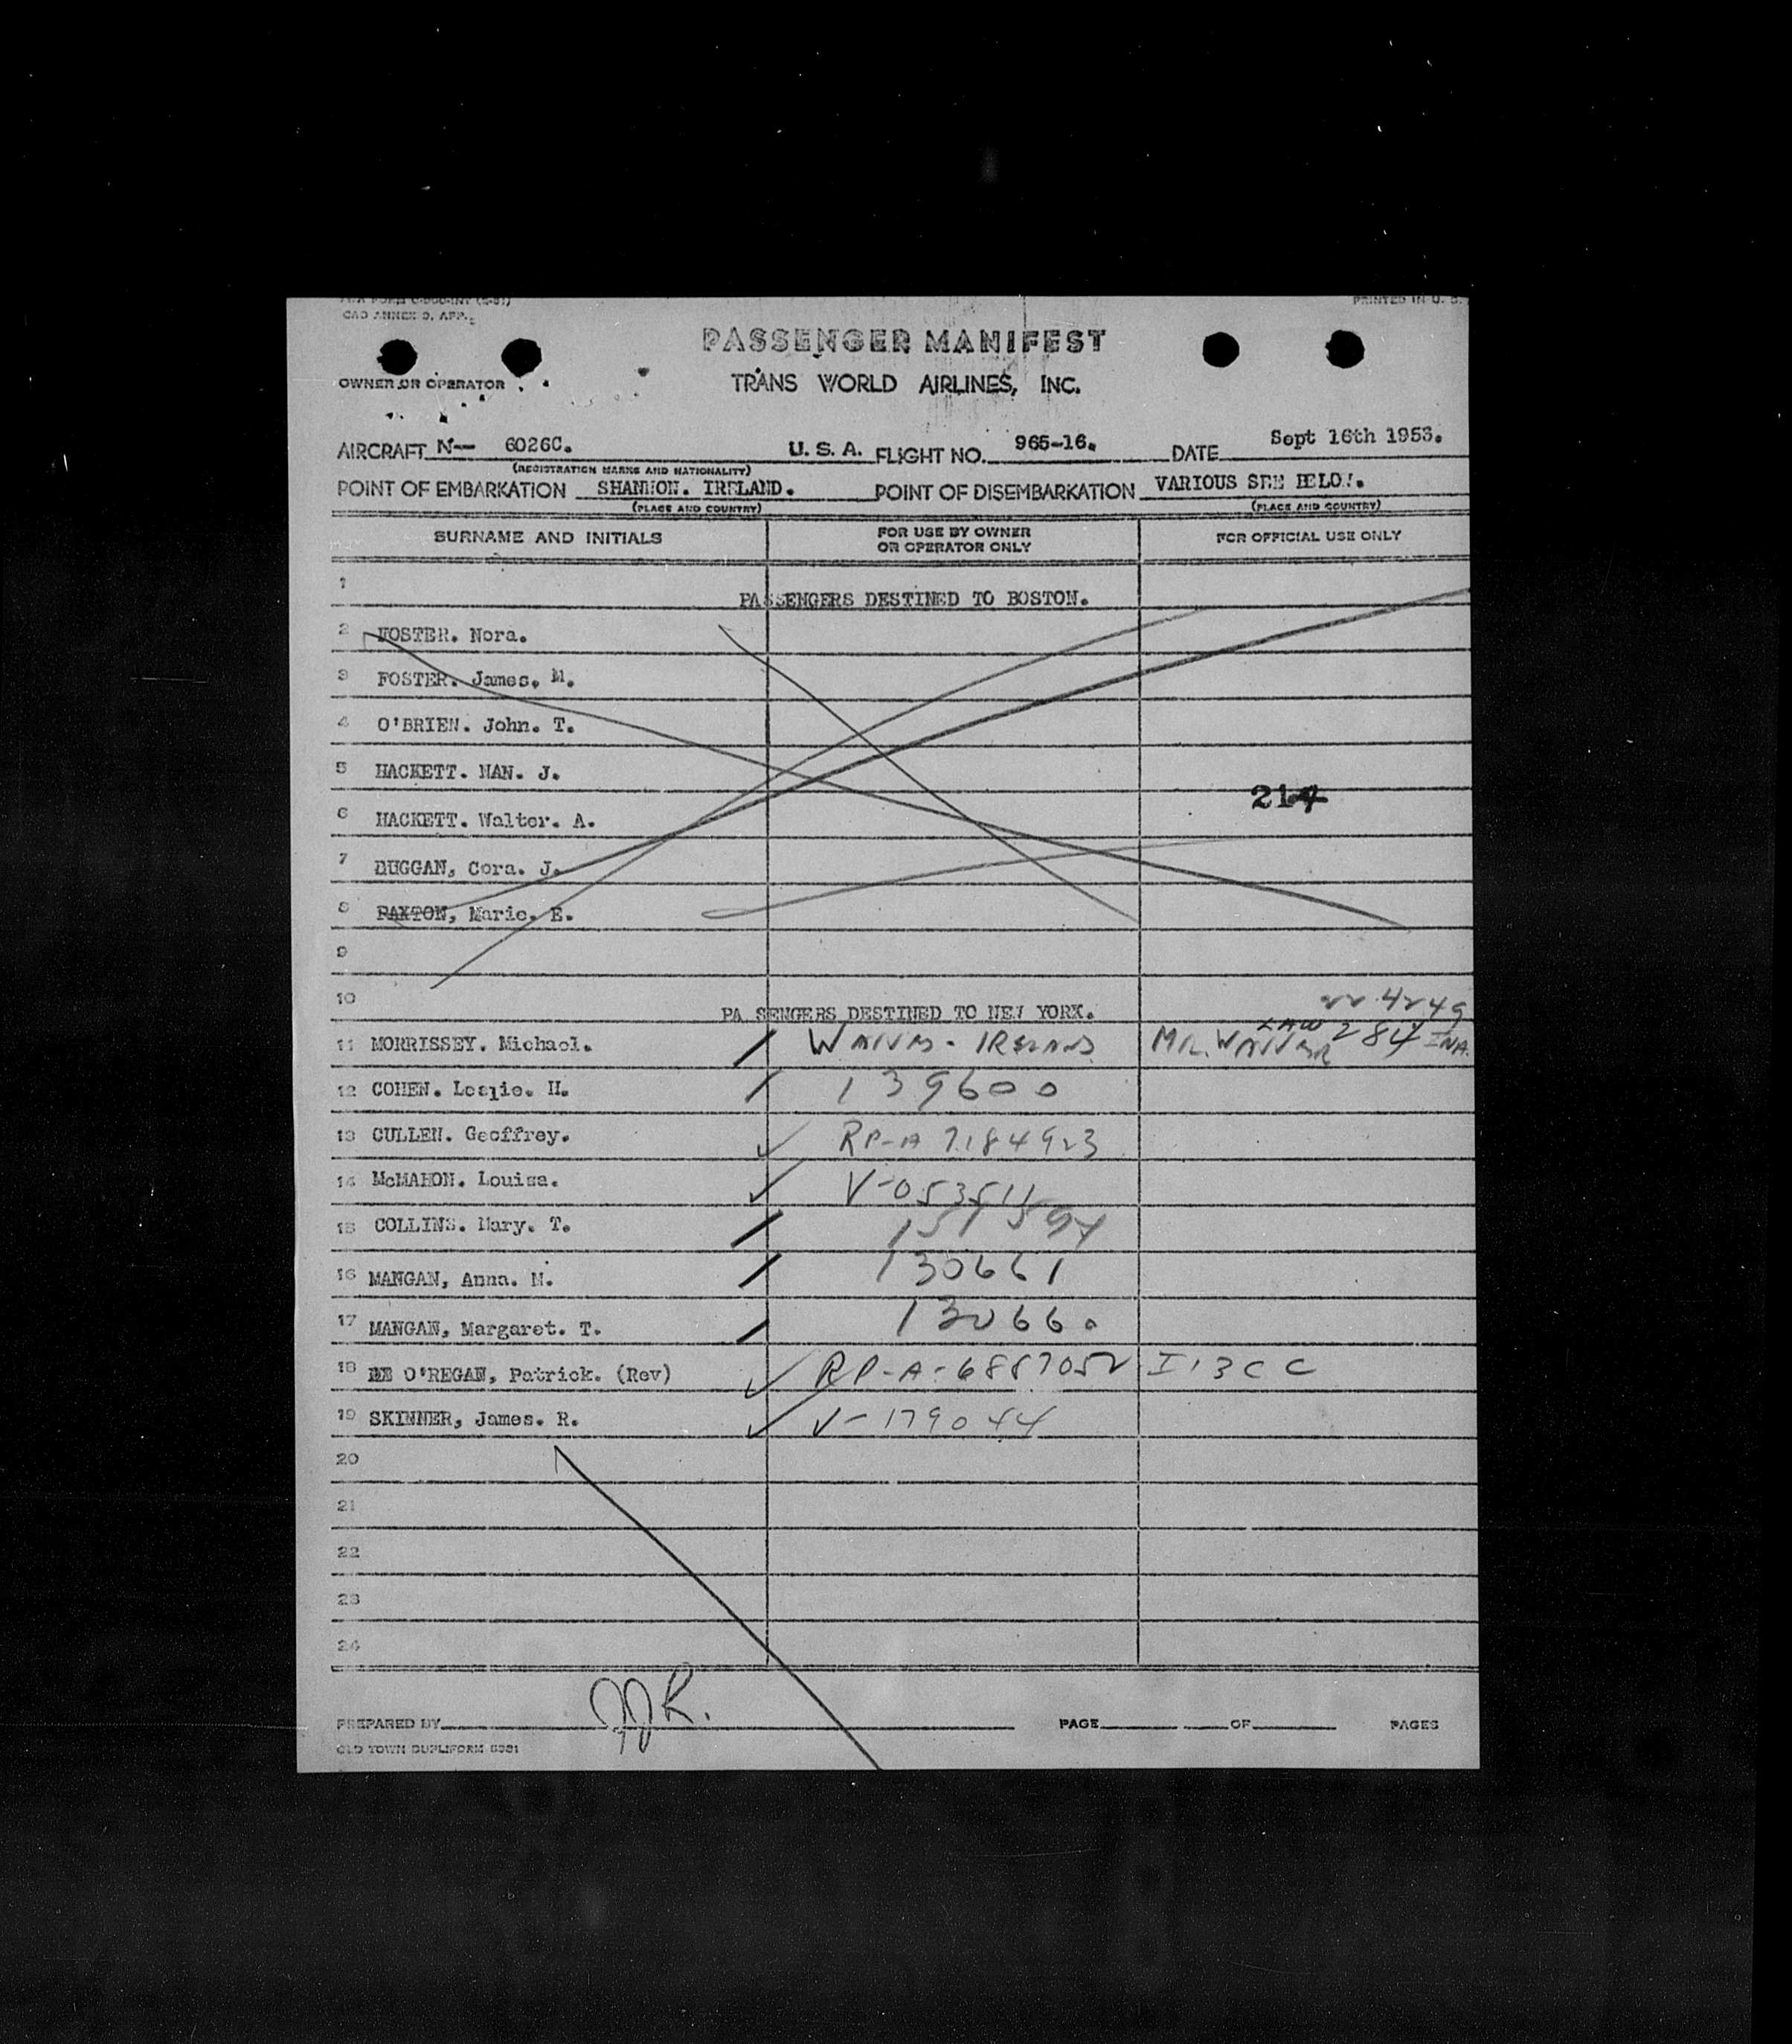 CAO ANNEX 9, APP.
PRINTED IN U. S.
PASSENGER MANIFEST
OWNER OR OPERATOR
TRANS WORLD AIRLINES, INC.
AIRCRAFT N-- 6026C. U. S. A. FLIGHT NO. 965-16. DATE Sept 16th 1953.
(REGISTRATION MARKS AND NATIONALITY)
POINT OF EMBARKATION SHANNON. IRELAND. POINT OF DISEMBARKATION VARIOUS SEE BELOW.
(PLACE AND COUNTRY) (PLACE AND COUNTRY)
SURNAME AND INITIALS FOR USE BY OWNER OR OPERATOR ONLY FOR OFFICIAL USE ONLY
1 PASSENGERS DESTINED TO BOSTON.
2 FOSTER. Nora.
3 FOSTER. James. M.
4 O'BRIEN. John. T.
5 HACKETT. NAN. J.
214
6 HACKETT. Walter. A.
7 DUGGAN, Cora. J.
8 PAXTON, Marie. E.
9
10 PA SENGERS DESTINED TO NEW YORK. 4249
11 MORRISSEY. Michael. / 284
12 COHEN. Leslie. H. / 139600
13 CULLEN. Geoffrey. ✓ RP-A 7184923
14 McMAHON. Louisa. ✓ V-053511
15 COLLINS. Mary. T. /
16 MANGAN, Anna. M. / 130661
17 MANGAN, Margaret. T. / 130660
18 DE O'REGAN, Patrick. (Rev) ✓ RP-A-6887052 I 13CC
19 SKINNER, James. R. ✓ V-179044
20
21
22
23
24
PREPARED BY JJR. PAGE OF PAGES
OLD TOWN DUPLIFORM 5331